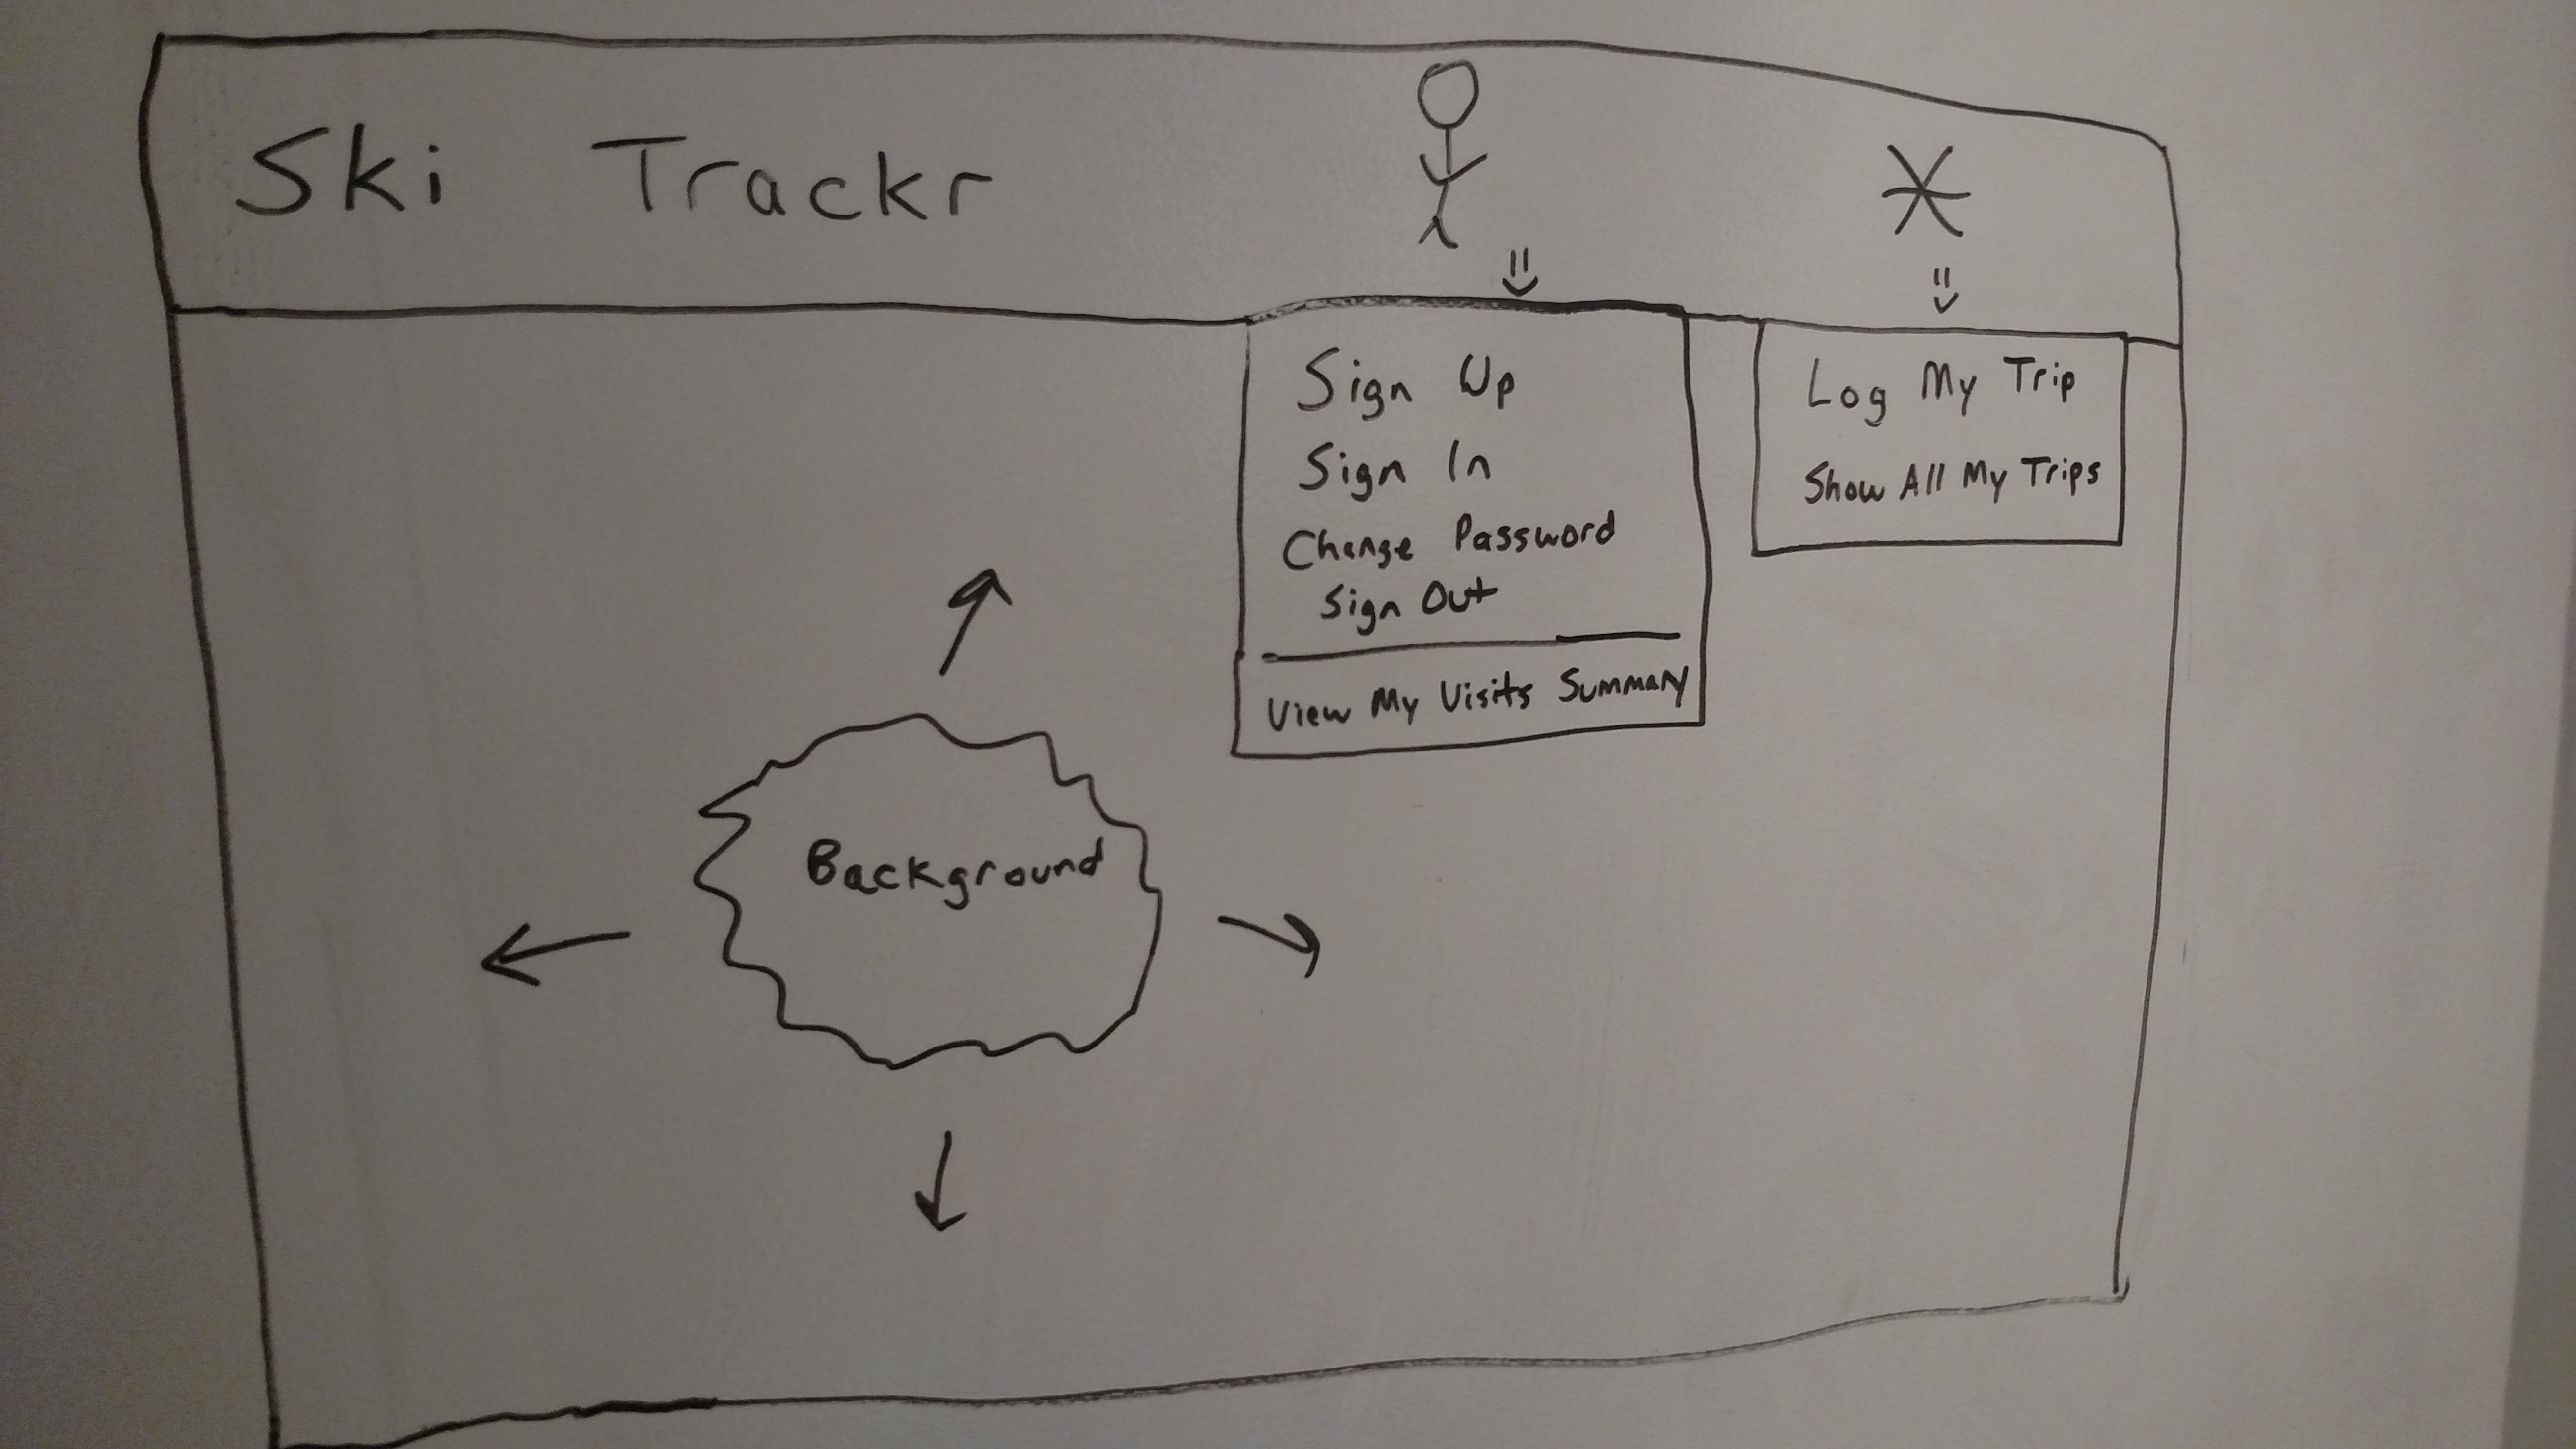 Ski Trackr
Sign Up
Sign In
Change Password
Sign Out
View My Visits Summary
Log My Trip
Show All My Trips
Background